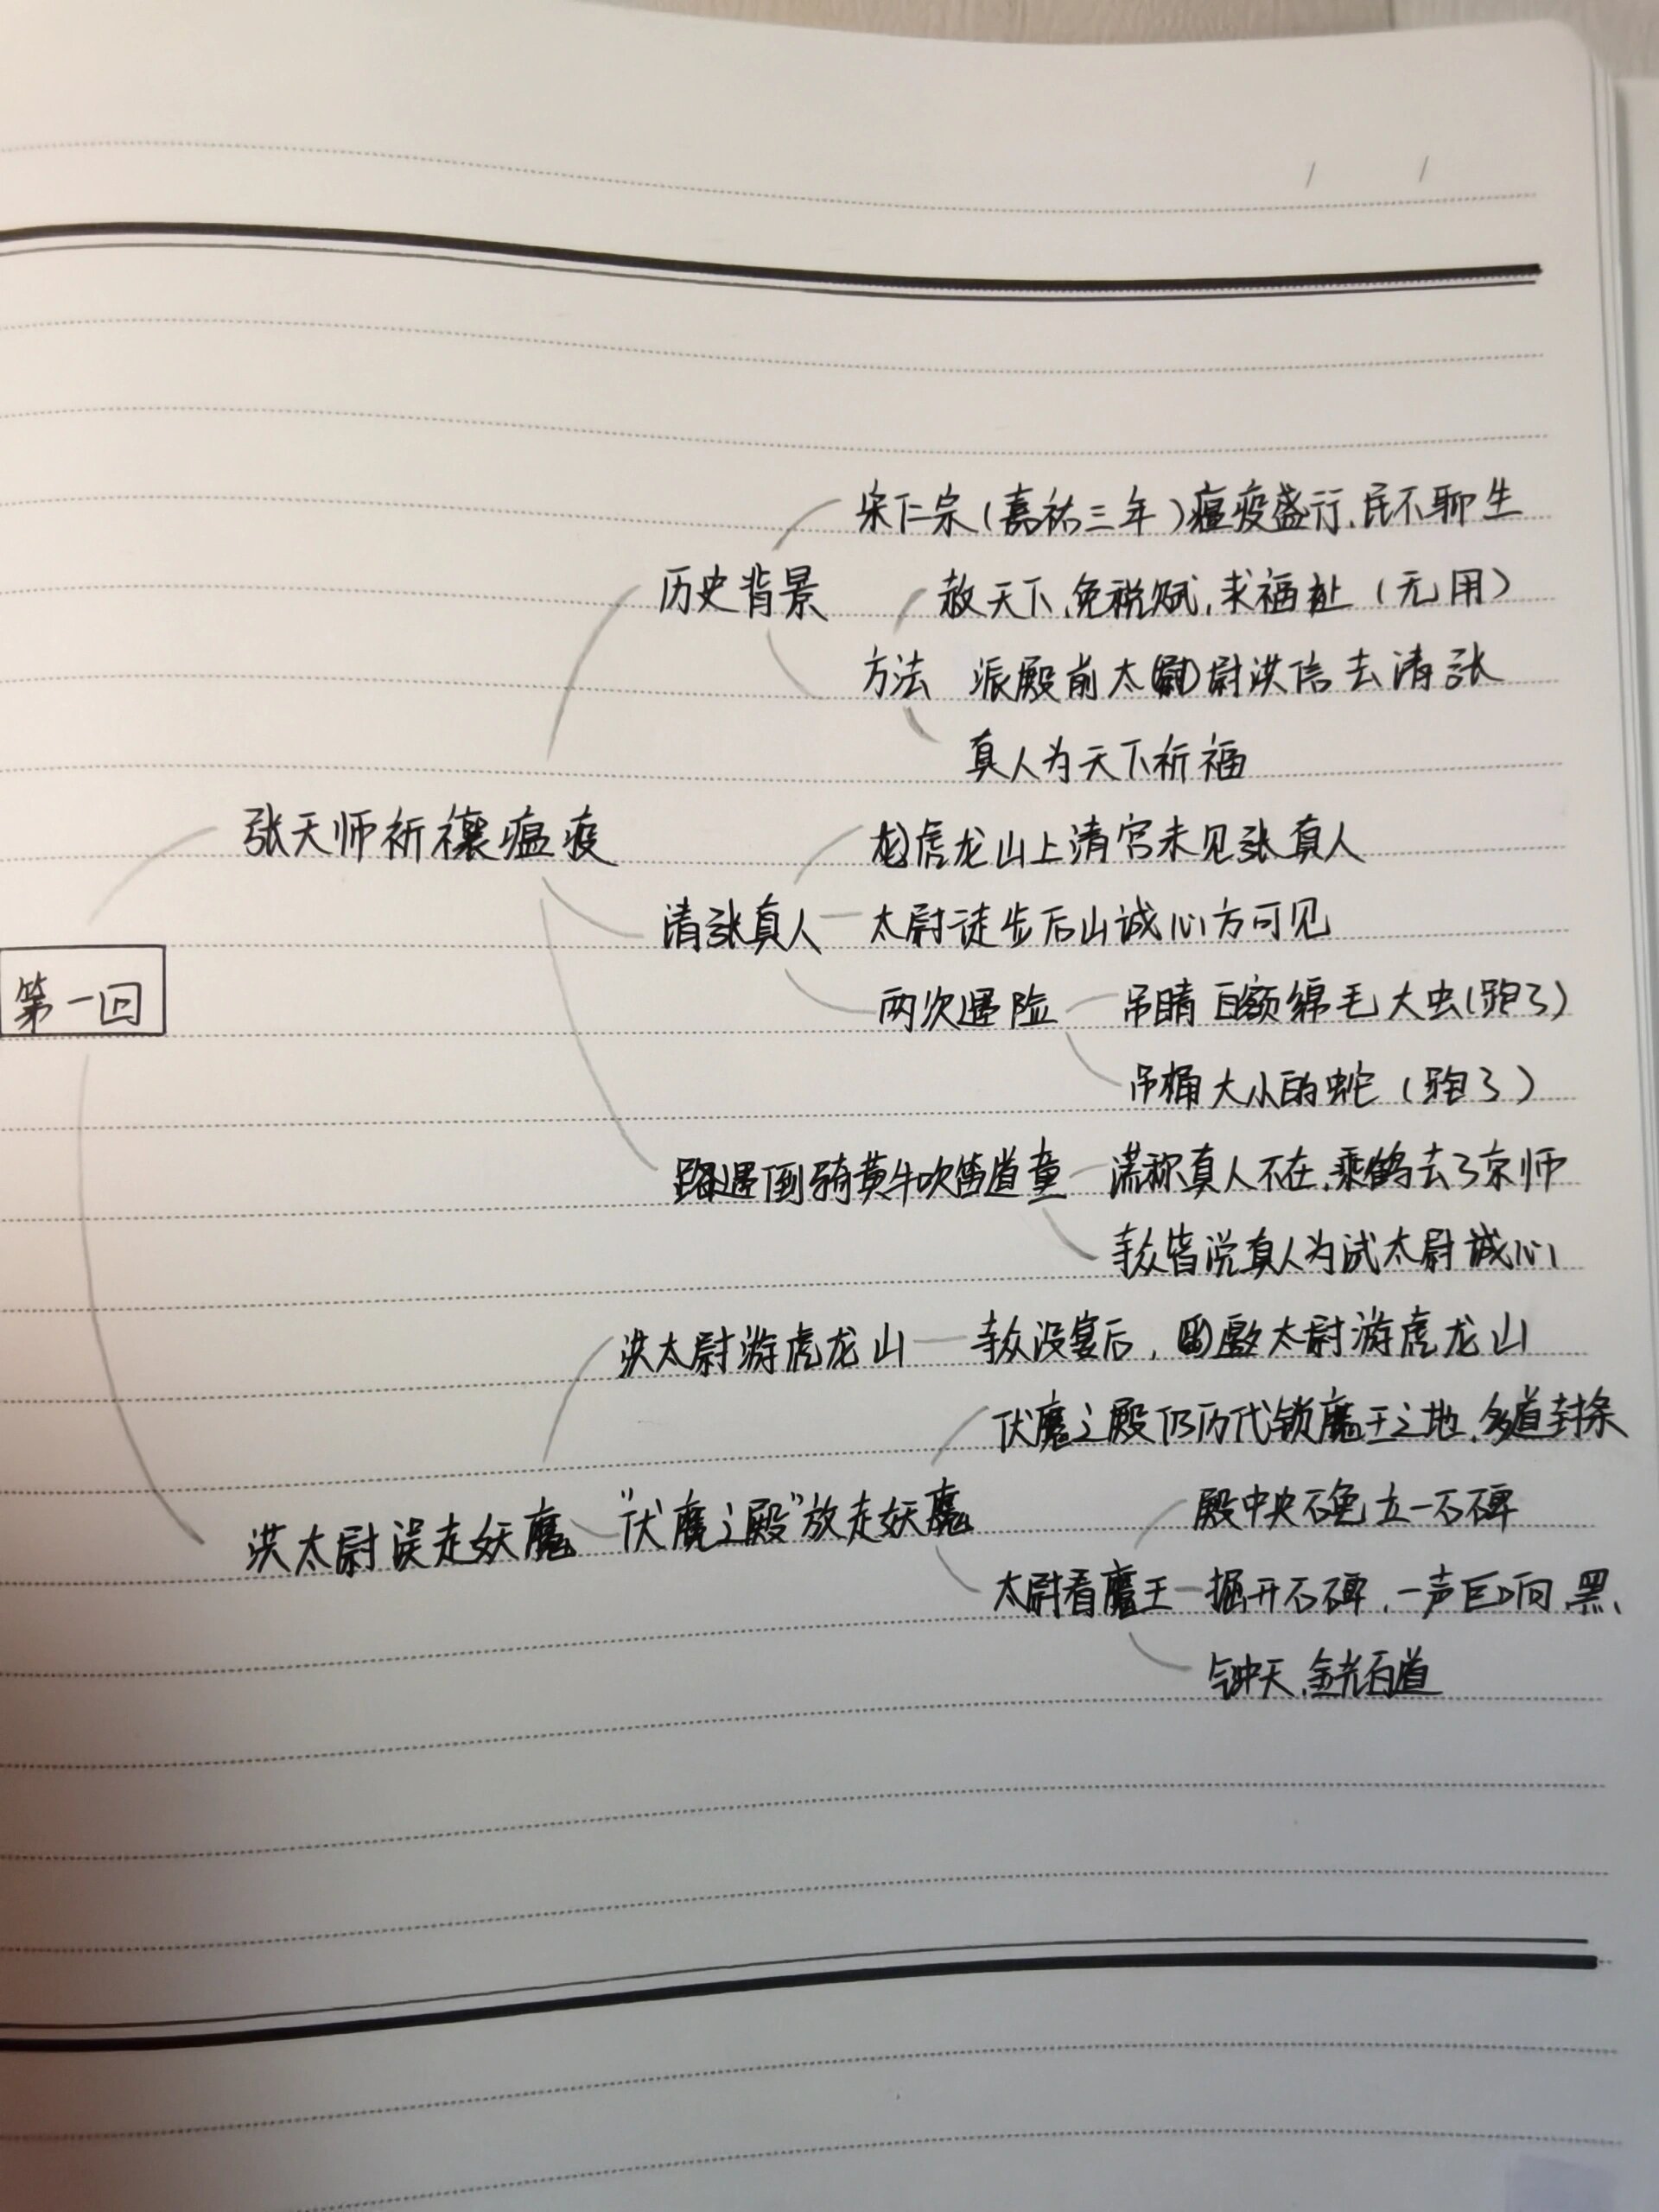 宋仁宗(嘉祐三年)瘟疫盛行,民不聊生
历史背景
赦天下,免税赋,求福祉(无用)
方法 派殿前太尉洪信去清张
真人为天下祈福
张天师祈禳瘟疫
龙虎龙山上清宫未见张真人
清张真人 太尉徒步后山诚心方可见
第一回
两次遇险 吊睛白额绵毛大虫(跑了)
吊桶大小的蛇(跑了)
路遇倒骑黄牛吹笛道童 谎称真人不在,乘鹤去了京师
众皆说真人为试太尉诚心
洪太尉游虎龙山 众设宴后,邀太尉游虎龙山
伏魔之殿仍历代锁魔王之地,多道封条
洪太尉误走妖魔 "伏魔之殿"放走妖魔
殿中央石龟立一石碑
太尉看魔王 掘开石碑,一声巨响,黑、
气冲天,金光百道